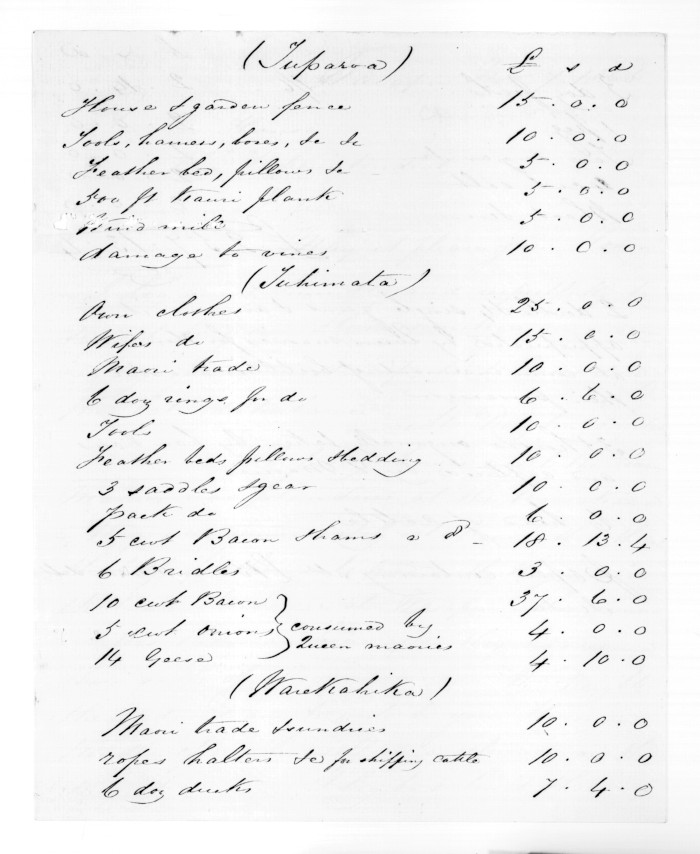 (Tuparoa) £ s d
House & garden fence 15 . 0 . 0
Tools, harness, boxes, &c &c 10 . 0 . 0
Feather bed, pillows &c 5 . 0 . 0
500 ft Kauri plank 5 . 0 . 0
Wind mill 5 . 0 . 0
damage to vines 10 . 0 . 0
(Tuhimata)
Own clothes 25 . 0 . 0
Wifes do 15 . 0 . 0
Maori trade 10 . 0 . 0
6 doz rings for do 6 . 6 . 0
Tools 10 . 0 . 0
Feather beds pillows & bedding 10 . 0 . 0
3 saddles & gear 10 . 0 . 0
Pack do 6 . 0 . 0
5 cwt Bacon & hams a 8d 18 . 13 . 4
6 Bridles 3 . 0 . 0
10 cwt Bacon 37 . 6 . 0
5 cwt onions } consumed by Queen maories 4 . 0 . 0
14 Geese 4 . 10 . 0
(Warekahika)
Maori trade & sundries 10 . 0 . 0
ropes halters &c for shipping cattle 10 . 0 . 0
6 doz ducks 7 . 4 . 0